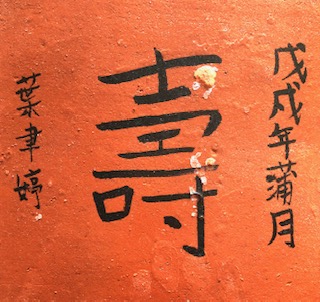 戊戌年蒲月
壽
葉聿婷